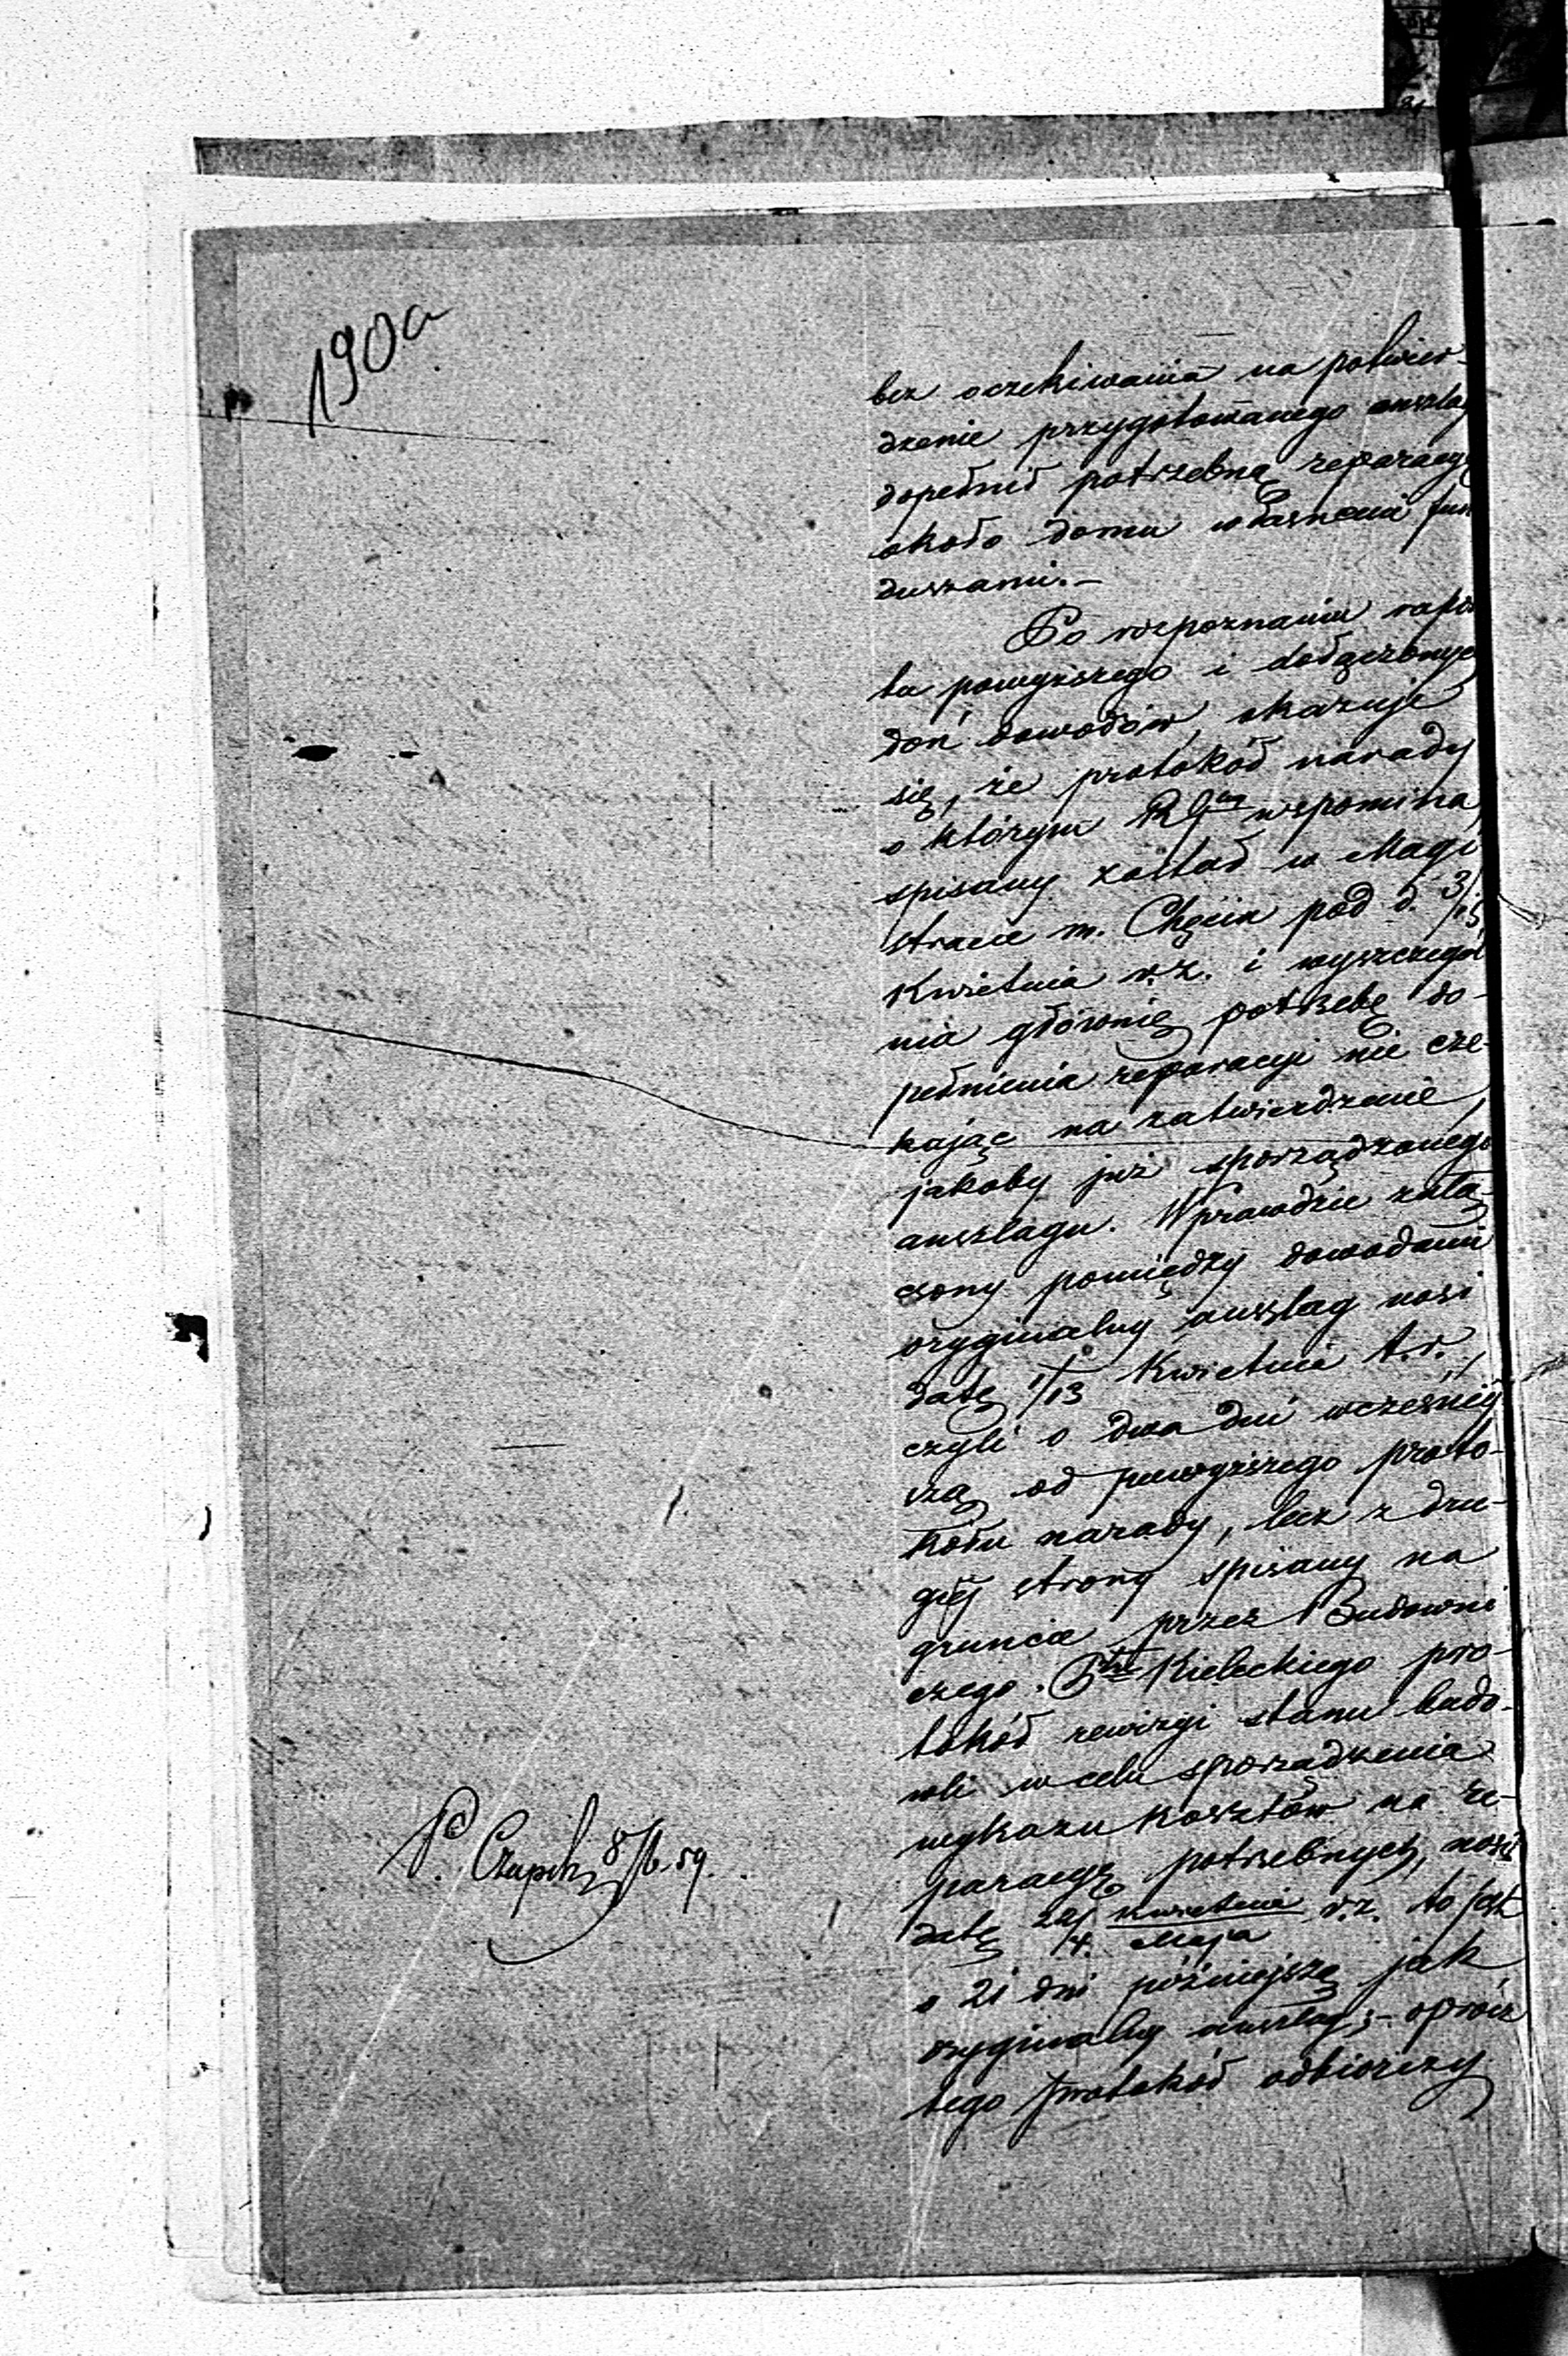 190a
bez oczekiwania na potwier-
dzenie przygotowanego anszlag
dopełnić potrzebną reparacyę
około domu własnemi fun
duszami.—
Po rozpoznaniu rapor
tu powyższego i dołączonych
doń dowodów, okazuje
się, że protokół narady
o którym wspomina,
spisany został w Magi
stracie m. Chęcin pod d. 3/15
Kwietnia r.z. i wyszczegól
nia głównie potrzebę do-
pełnienia reparacyi nie cze-
kając na zatwierdzenie
jakoby już sporządzonego
anszlagu. Wprawdzie załą-
czony pomiędzy dowodami
oryginalny anszlag nosi
datę 1/13 Kwietnia t.r.,
czyli o dwa dni wcześniej
szą od powyższego proto-
kołu narady, lecz z dru-
giej strony spisany na
gruncie przez Budowni
czego Ptu Kieleckiego pro-
tokół rewizyi stanu budo-
wli w celu sporządzenia
wykazu kosztów na re-
paracyę potrzebnych, nosi
datę 22/4 Kwietnia/Maja r.z. to jest
o 21 dni późniejszą jak
oryginalny anszlag;- oprócz
tego protokół odbiorczy
P. Czapik 8/6 59.